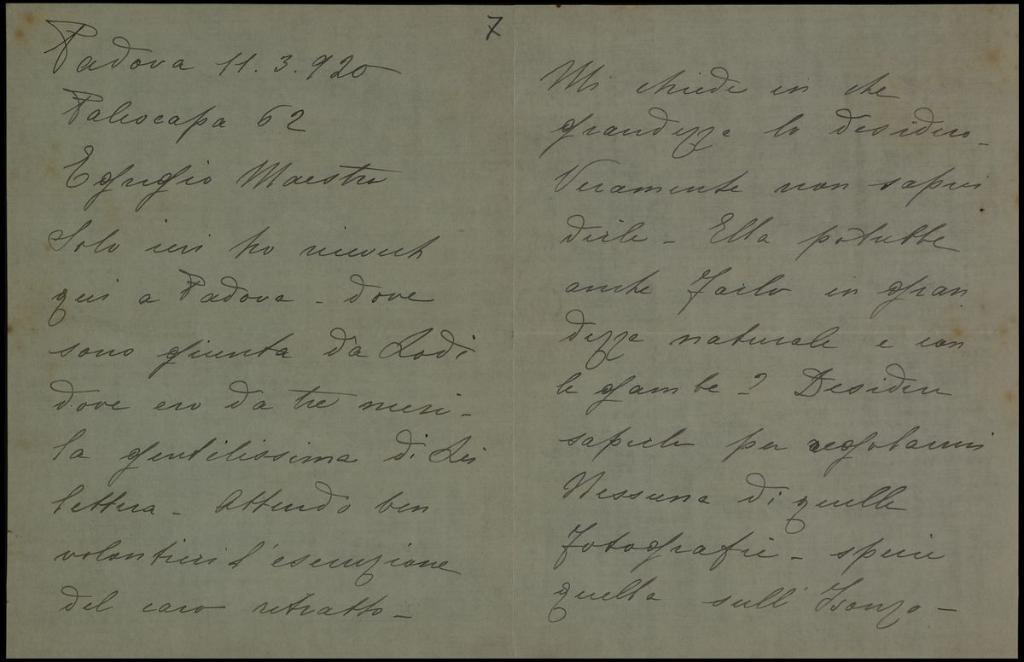 7
Padova 11.3.920
Paleocapa 62
Egregio Maestro
Solo ieri ho ricevuto
qui a Padova - dove
sono giunta da Lodi
dove ero da tre mesi -
la gentilissima di Lei
lettera - Attendo ben
volontieri l'esecuzione
del caro ritratto -
Mi chiede in che
grandezza lo desidero -
Veramente non saprei
dirle - Ella potrebbe
anche farlo in gran
dezza naturale e con
le gambe? Desidero
saperlo per regolarmi
Nessuna di quelle
fotografie - specie
quella sull'Isonzo -